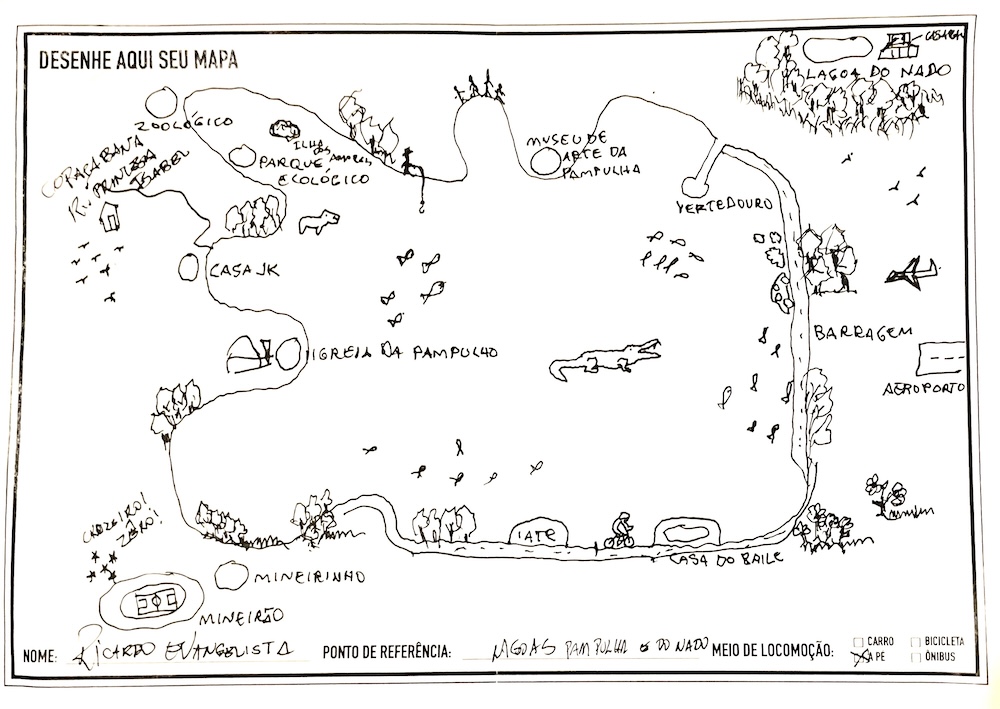 DESENHE AQUI SEU MAPA
CASARÃO
LAGOA DO NADO
ZOOLÓGICO
ILHA
DOS
AMORES
PARQUE
ECOLÓGICO
MUSEU DE
ARTE DA
PAMPULHA
COPACABANA
PRINCESA
ISABEL
VERTEDOURO
CASA JK
IGREJA DA PAMPULHO
BARRAGEM
AEROPORTO
CRUZEIRO!
ZÊRO!
IATE
CASA DO BAILE
MINEIRINHO
MINEIRÃO
NOME: RICARDO EVANGELISTA PONTO DE REFERÊNCIA: LAGOAS PAMPULHA E DO NADO MEIO DE LOCOMOÇÃO: CARRO BICICLETA
A PE ÔNIBUS